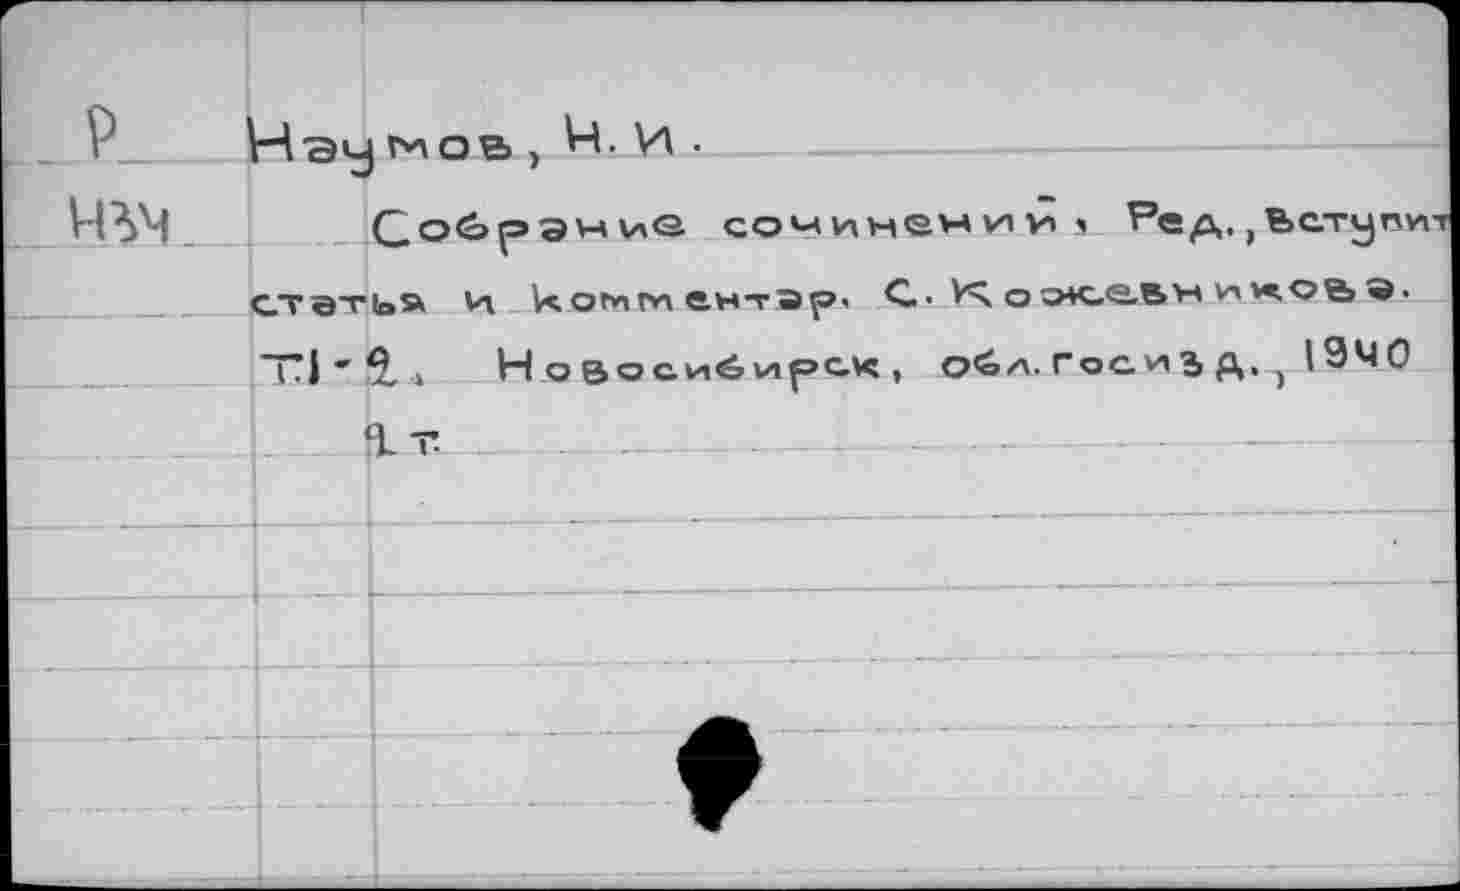 Р Наумов, Н. И.
Н34 Собрание сочинений, Ред., вступит
статья и комментар. С. Кожевникова.
Т.1-2, Новосибирск, обл. Госизд., 1940
2 т.